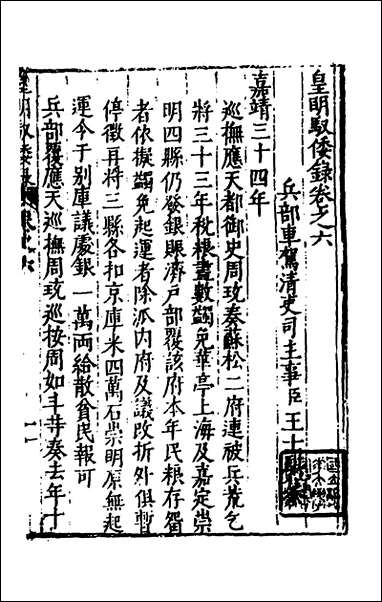 皇明馭倭錄卷之六
兵部車駕清吏司主事臣王士
嘉靖三十四年
巡撫應天都御史周珫奏蘇松二府連被兵荒乞
將三十三年稅粮盡數蠲免華亭上海及嘉定崇
明四縣仍發銀賑濟戶部覆該府本年民粮存留
者依擬蠲免起運者除派內府及議改折外俱暫
停徵再將三縣各扣京庫米四萬石崇明原無起
運今于別庫議處銀一萬兩給散貧民報可
兵部覆應天巡撫周珫巡按周如斗等奏去年十